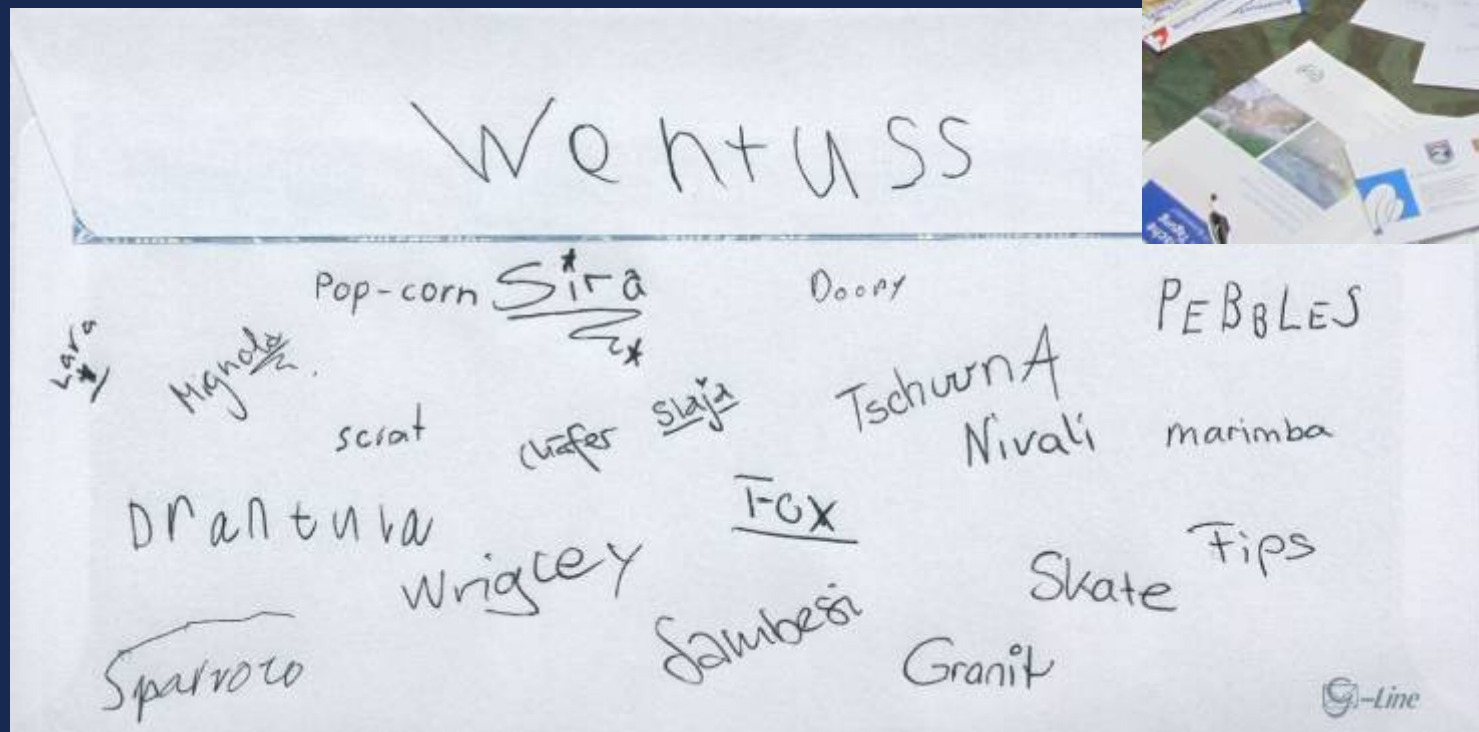 Wentuss
Pop-corn Sira Doopy PEBBLES
Lara Mignola
TschuurnA
scrat Chäfer Slaja Nivali marimba
Drantula Fox
Wrigley Skate Fips
Sparrow Sambesi Granit
G-Line